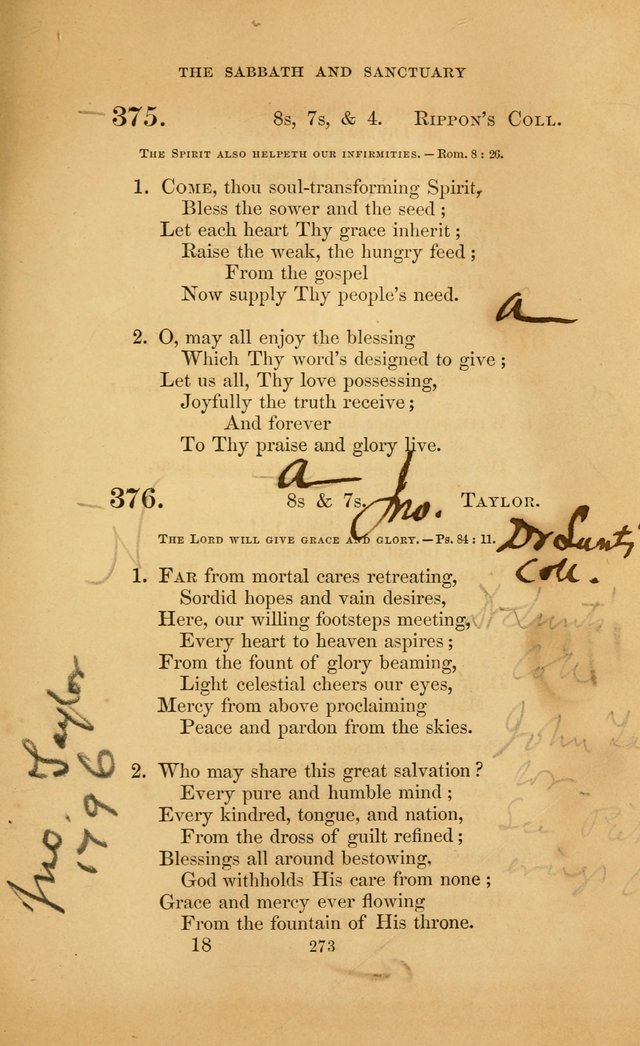 THE SABBATH AND SANCTUARY
375. 8s, 7s, & 4. RIPPON'S COLL.
THE SPIRIT ALSO HELPETH OUR INFIRMITIES. — Rom. 8 : 26.
1. COME, thou soul-transforming Spirit,
Bless the sower and the seed ;
Let each heart Thy grace inherit ;
Raise the weak, the hungry feed ;
From the gospel
Now supply Thy people's need.
a
2. O, may all enjoy the blessing
Which Thy word's designed to give ;
Let us all, Thy love possessing,
Joyfully the truth receive ;
And forever
To Thy praise and glory live.
a
376. 8s & 7s. Jno. TAYLOR.
THE LORD WILL GIVE GRACE AND GLORY. — Ps. 84 : 11.
Dr Lunts'
Coll.
1. FAR from mortal cares retreating,
Sordid hopes and vain desires,
Here, our willing footsteps meeting,
Every heart to heaven aspires ;
From the fount of glory beaming,
Light celestial cheers our eyes,
Mercy from above proclaiming
Peace and pardon from the skies.
Dr Lunts'
Coll.
John
See
Jno. Taylor
1796
2. Who may share this great salvation ?
Every pure and humble mind ;
Every kindred, tongue, and nation,
From the dross of guilt refined ;
Blessings all around bestowing,
God withholds His care from none ;
Grace and mercy ever flowing
From the fountain of His throne.
18 273